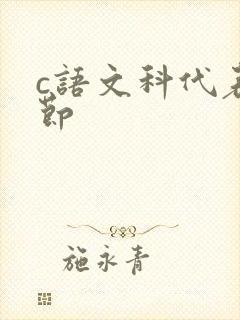 c語文科代表
節
施永青